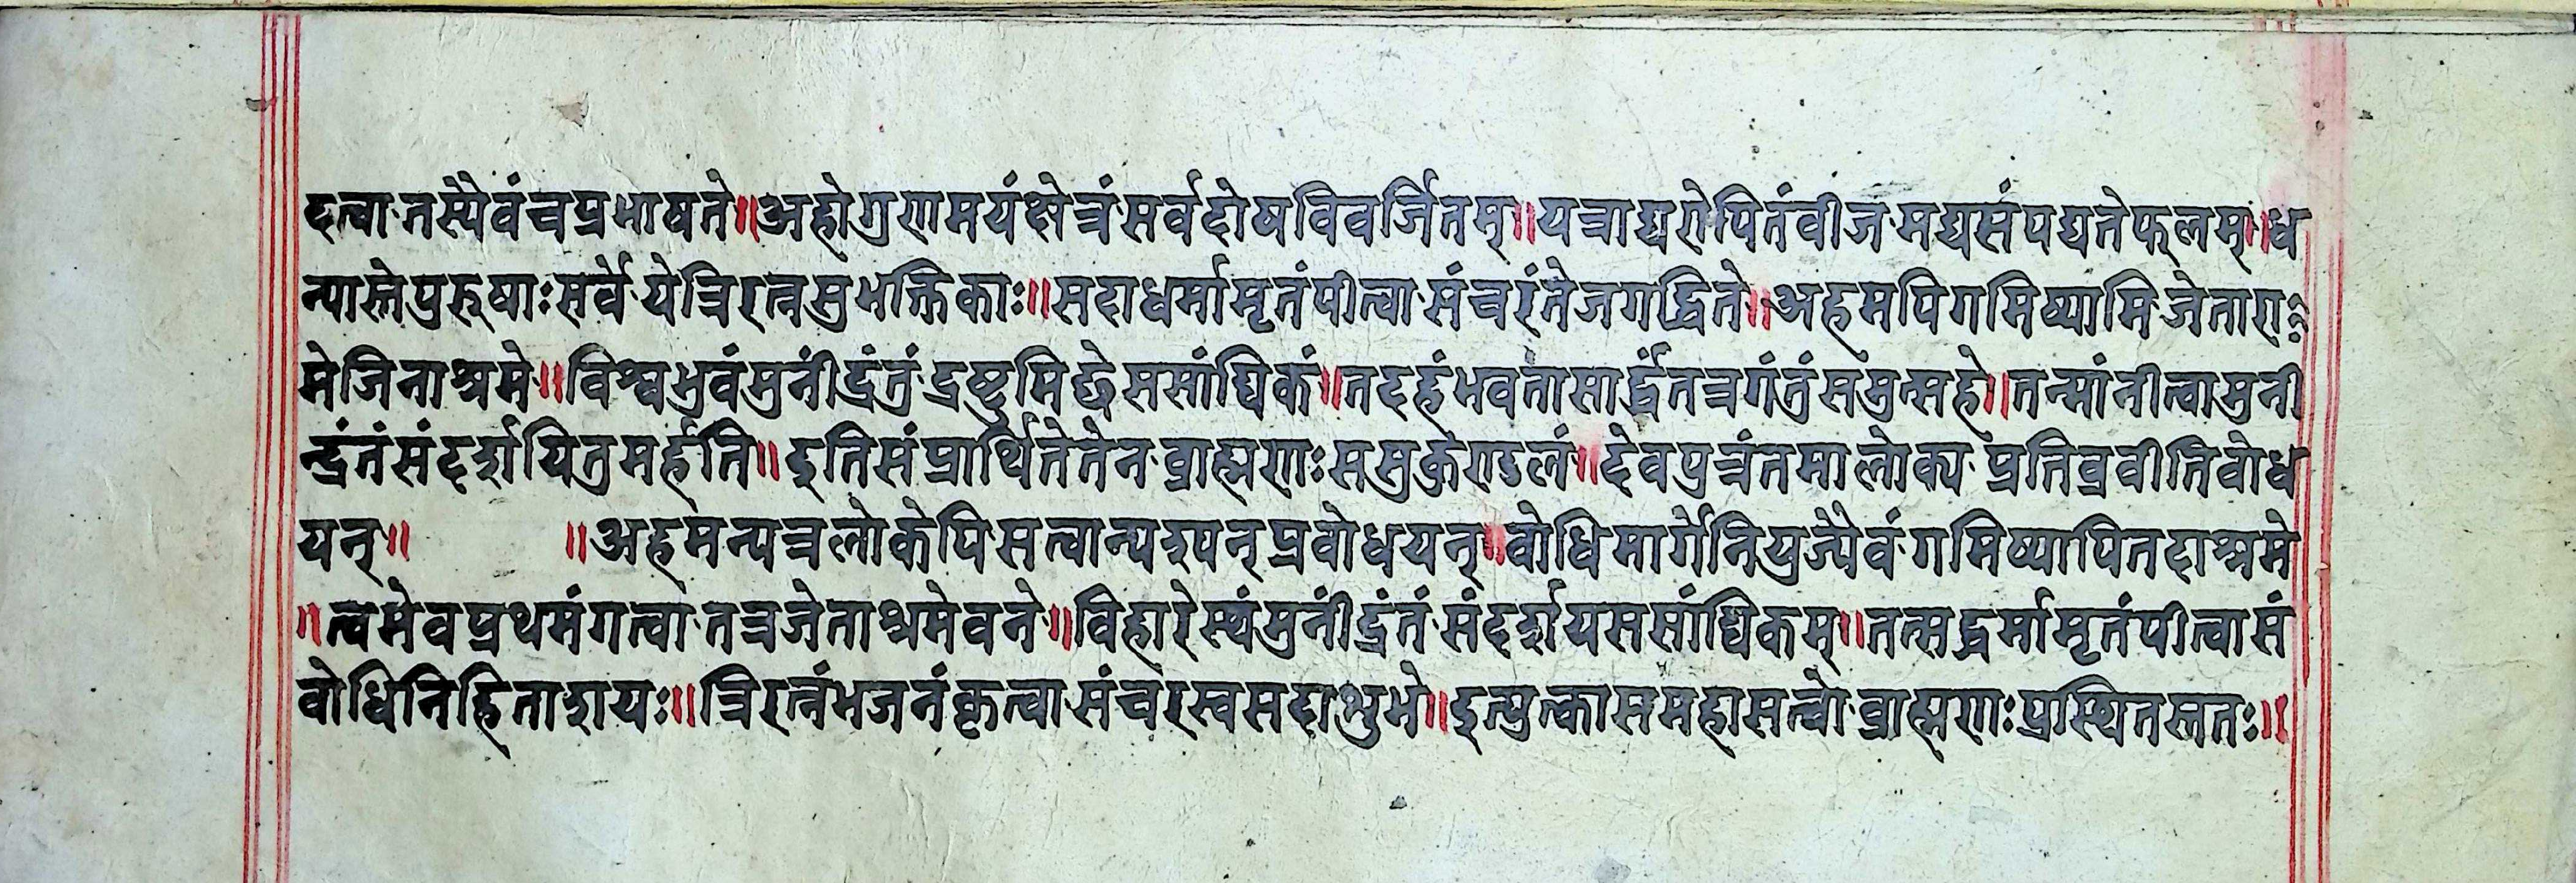 दत्वा तस्यैवं च प्रभाषते॥अहो गुणमयं क्षेत्रं सर्वदोषविवर्जितम्॥यत्राद्य रोपितं वीजमद्य संपद्यते फलम्॥ध
न्यास्ते पुरुषाः सर्वे ये त्रिरत्नसुभक्तिकाः॥सदा धर्मामृतं पीत्वा संचरंते जगद्धिते॥अहमपि गमिष्यामि जेतारा
मे जिनाश्रमे॥विश्वभुवं मुनींद्रं तं द्रष्टुमिछे ससांघिकं॥तदहं भवता सार्द्धं तत्र गंतुं समुत्सहे॥तन्मां नीत्वा मुनी
न्द्रं तं संदर्शयितुमर्हति॥इति संप्रार्थिते तेन व्राह्मणः स सुकुण्डलं॥देवपुत्रं तमालोक्य प्रतिव्रवीति वोध
यन्॥ ॥अहमन्यत्र लोकेपि सत्वान्पश्यन् प्रवोधयन्॥वोधिमार्गे नियुज्यैवं गमिष्यापि तदाश्रमे
॥त्वमेव प्रथमं गत्वा तत्र जेताश्रमे वने॥विहारेस्थं मुनींद्रं तं संदर्शय ससांघिकम्॥तत्सद्धर्मामृतं पीत्वा सं
वोधिनिहिताशयः॥त्रिरत्नं भजनं कृत्वा संचरस्व सदा शुभे॥इत्युत्का स महासत्वो व्राह्मणः प्रस्थितस्ततः॥